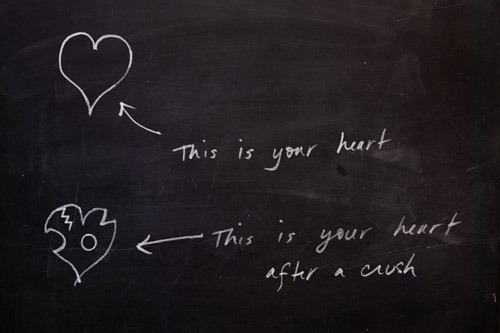 This is your heart
This is your heart
after a crush